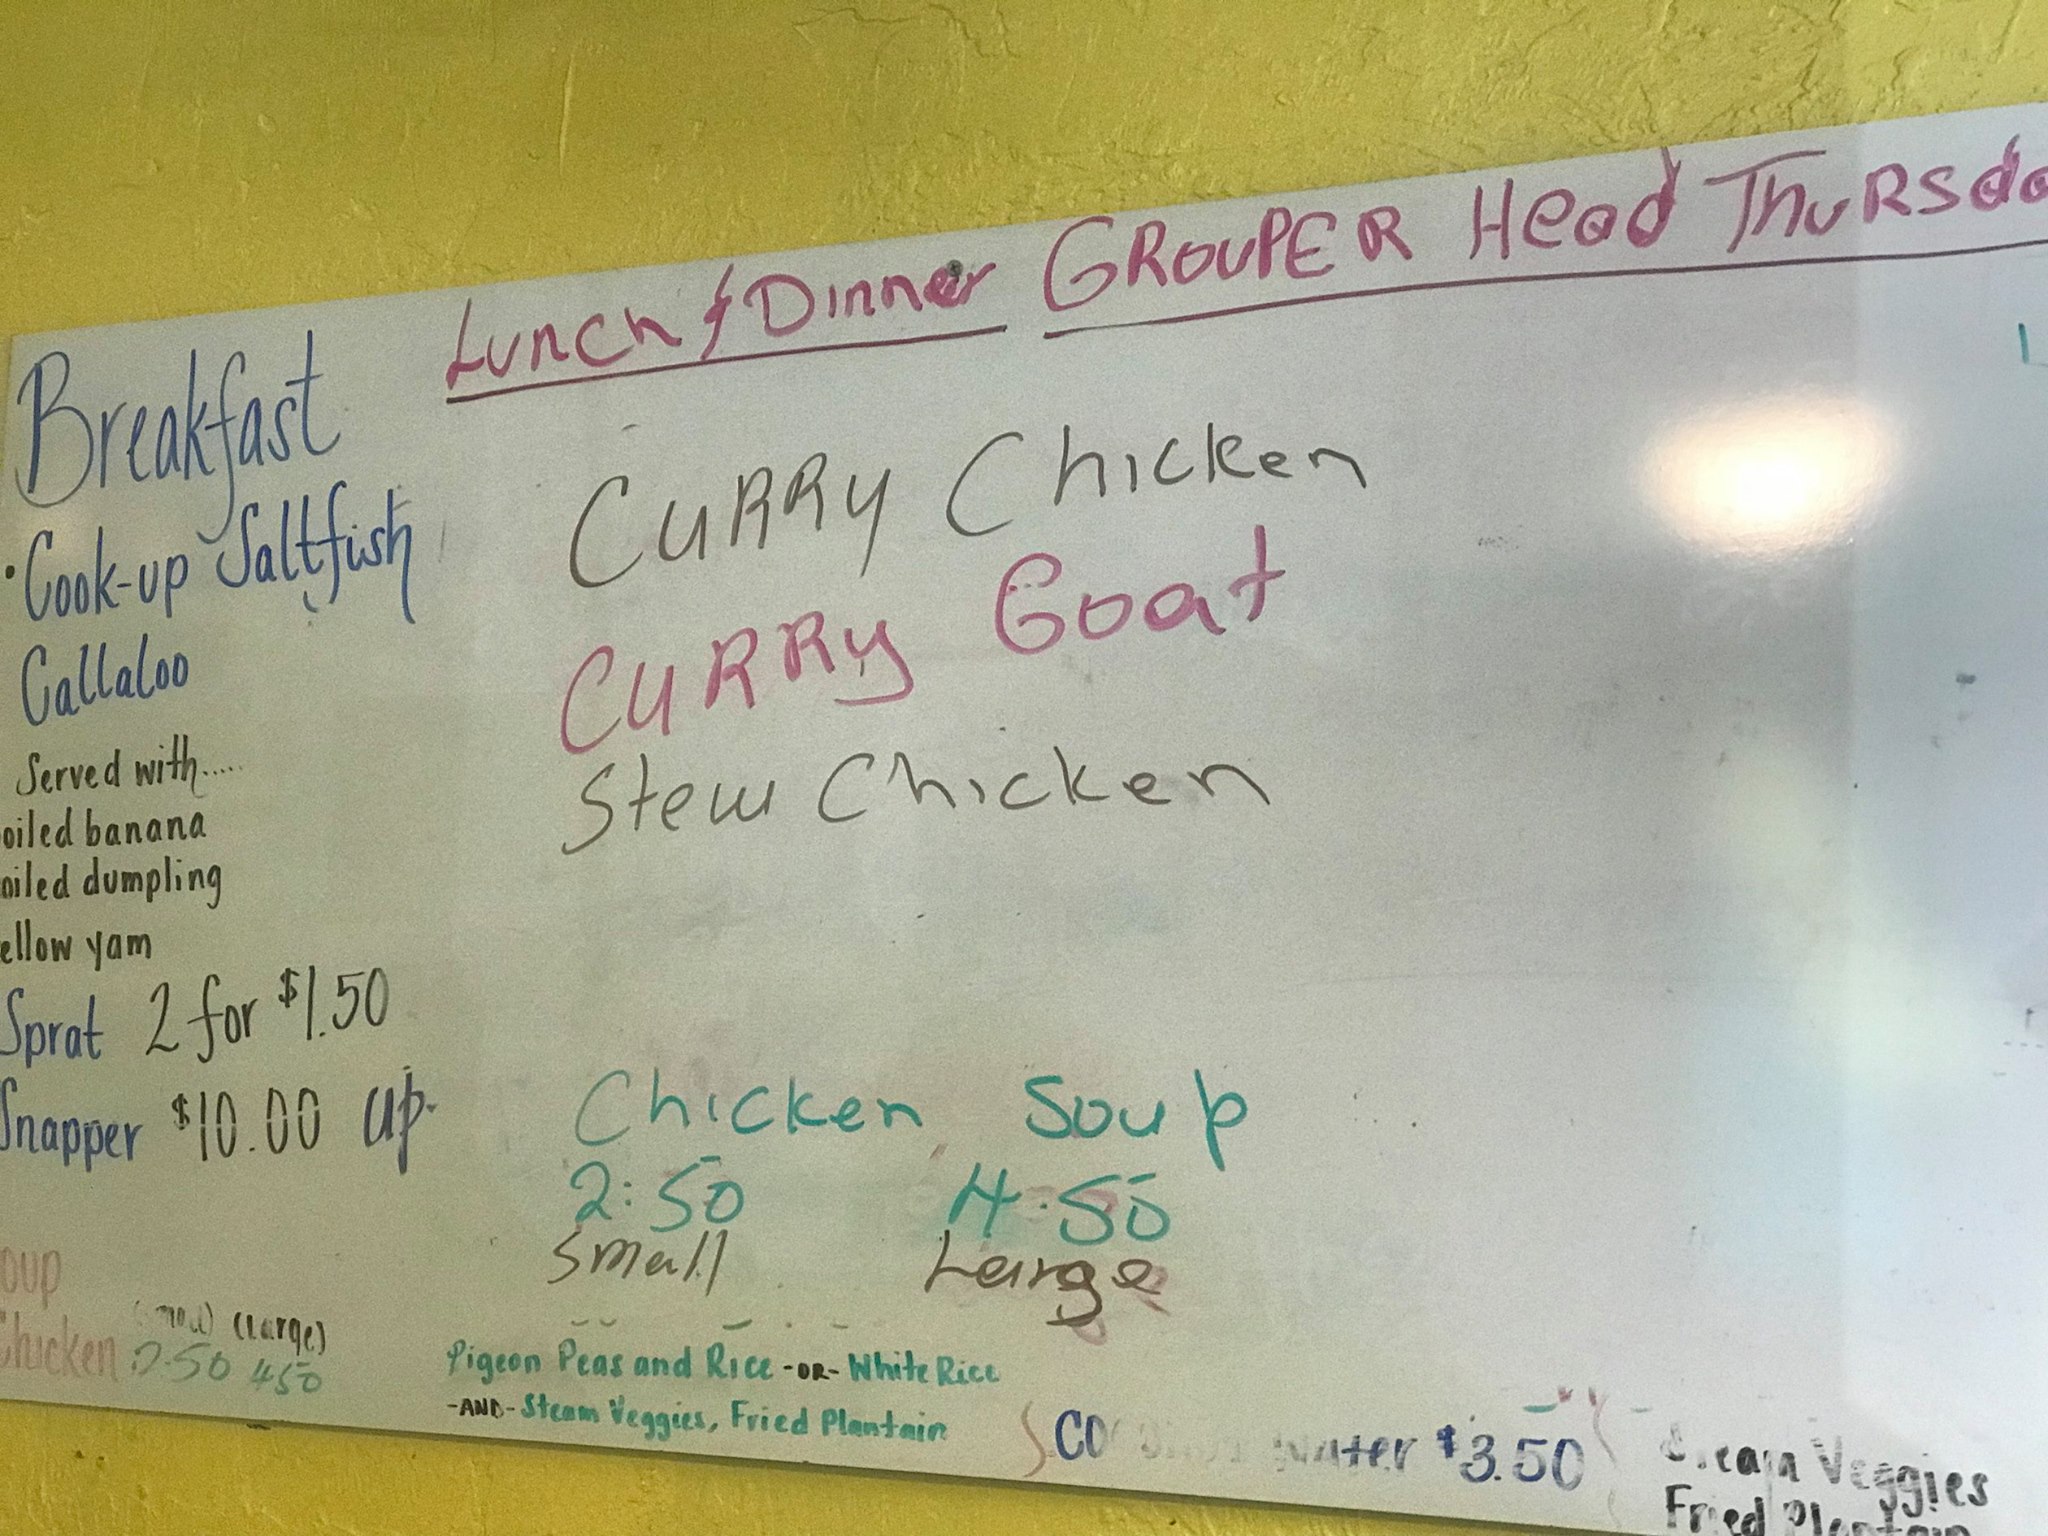 Lunch & Dinner GROUPER Head Thursda
Breakfast
• Cook-up Saltfish
Callaloo
Served with.....
oiled banana
oiled dumpling
ellow yam
Sprat 2 for $1.50
Snapper $10.00 up
oup
Chicken (Large)
2.50 450
CURRY Chicken
CURRy Goat
Stew Chicken
Chicken Soup
2:50 4.50
Small Large
Pigeon Peas and Rice -OR- White Rice
-AND- Steam Veggies, Fried Plantain
CO Water $3.50
Steam Veggies
Fried Plantain